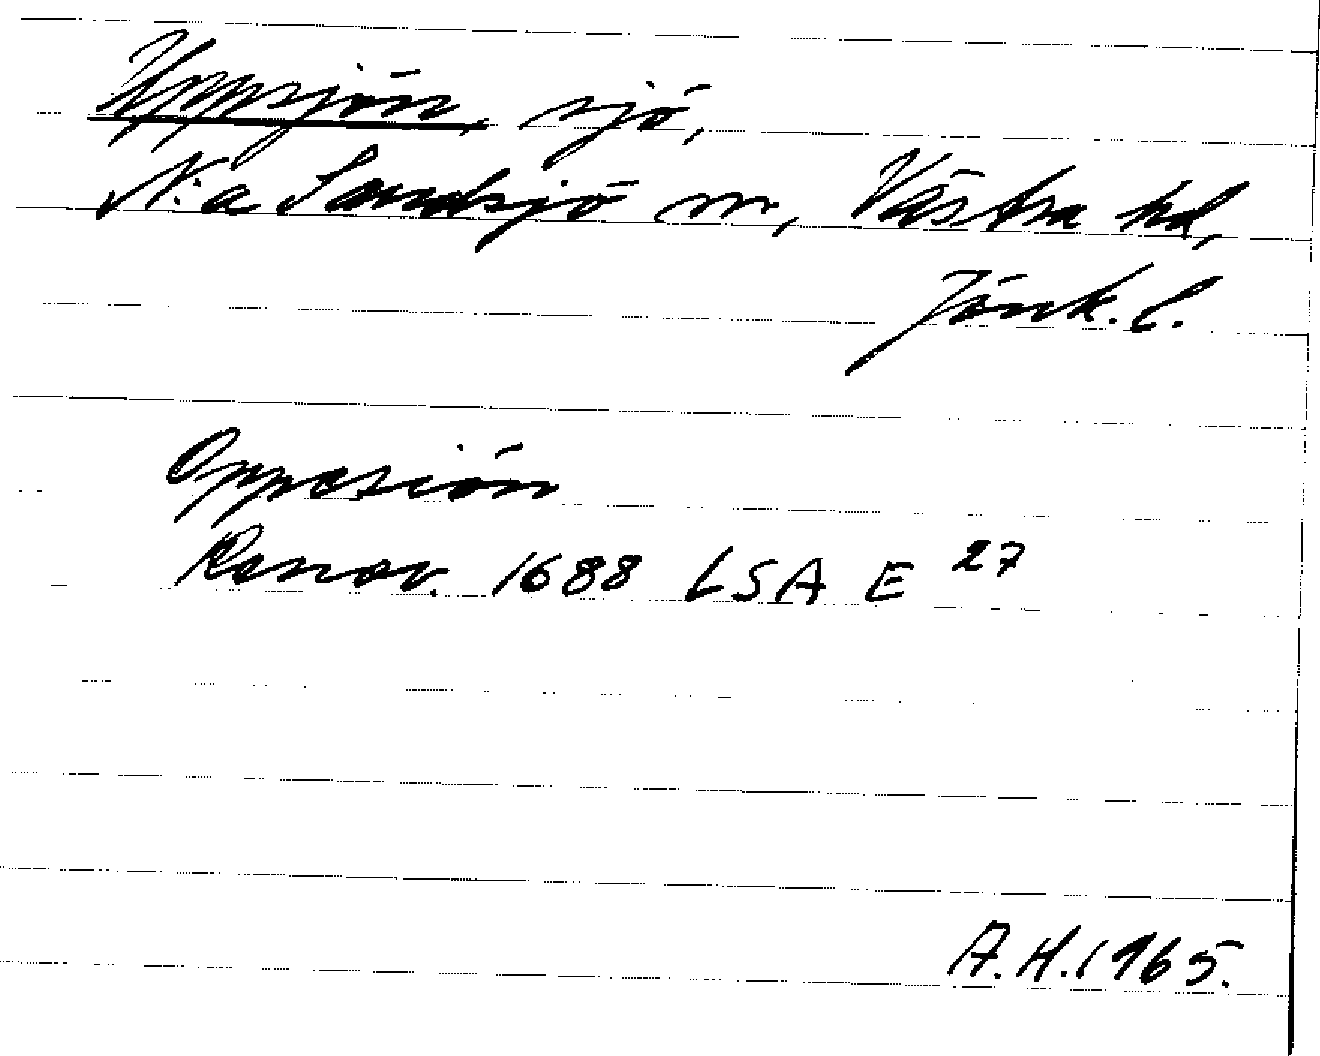 Uppsjön, sjö,
N:a Sandsjö sn, Västra hd,
Jönk. l.
Oppasiön
Renov. 1688 LSA E 27
A.H. 1965.